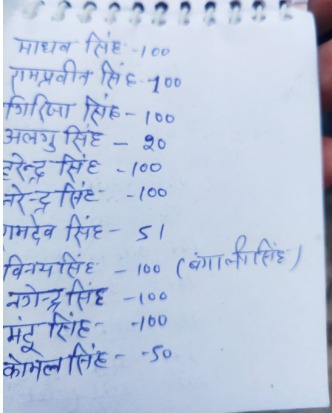 माधव सिंह - 100
रामप्रवीत सिंह - 100
गिरिजा सिंह - 100
अलगु सिंह - 20
हरेन्द्र सिंह - 100
नरेन्द्र सिंह - 100
रामदेव सिंह - 51
विनय सिंह - 100 (बंगाली सिंह)
नगेन्द्र सिंह - 100
मंटू सिंह - 100
कोमल सिंह - 50